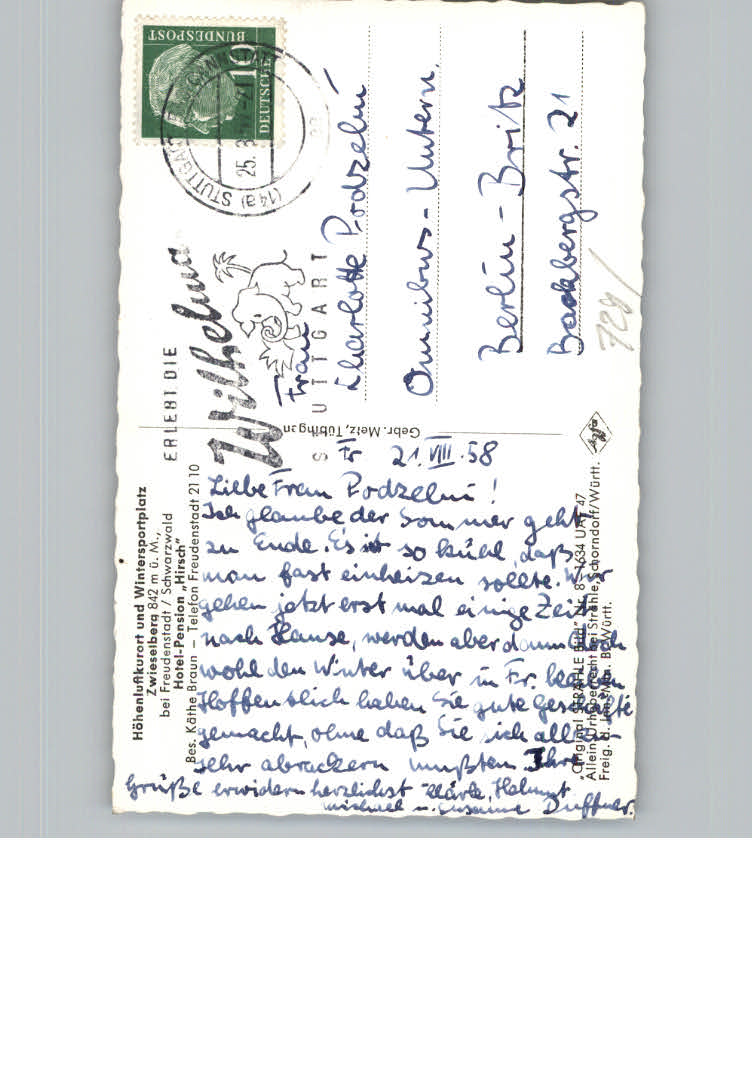 Höhenluftkurort und Wintersportplatz
Zwieselberg 842 m ü. M.,
bei Freudenstadt / Schwarzwald
Hotel-Pension „Hirsch"
Bes. Käthe Braun — Telefon Freudenstadt 21 10
Fr 21. VIII. 58
Liebe Frau Podzelni!
Ich glaube der Sommer geht
zu Ende. Es ist so kühl, daß
man fast einheizen sollte. Wir
gehen jetzt erst mal einige Zeit
nach Hause, werden aber dann doch
wohl den Winter über in Fr.
Hoffentlich haben Sie gute Geschäfte
gemacht, ohne daß Sie sich allzu
sehr abrackern mußten. Ihre
Grüße erwidern herzlichst Klärle, Helmut
Michael u. Susanne Duffner.
"Original STRÄHLE Bild" Nr. 8 - 1634 UAT 47
Allein. Urheberrecht bei Strähle, Schorndorf/Württ.
Freig. d. Inn. Min. B. Württ.
Gebr. Metz, Tübingen
Agfa
DEUTSCHE
BUNDESPOST
10
(14a) STUTTGART - CANNSTATT
25. 8.
ERLEBT DIE
Wilhelma
STUTTGART
Frau
Charlotte Podzelni
Omnibus-Untern.
Berlin-Britz
Backbergstr. 21